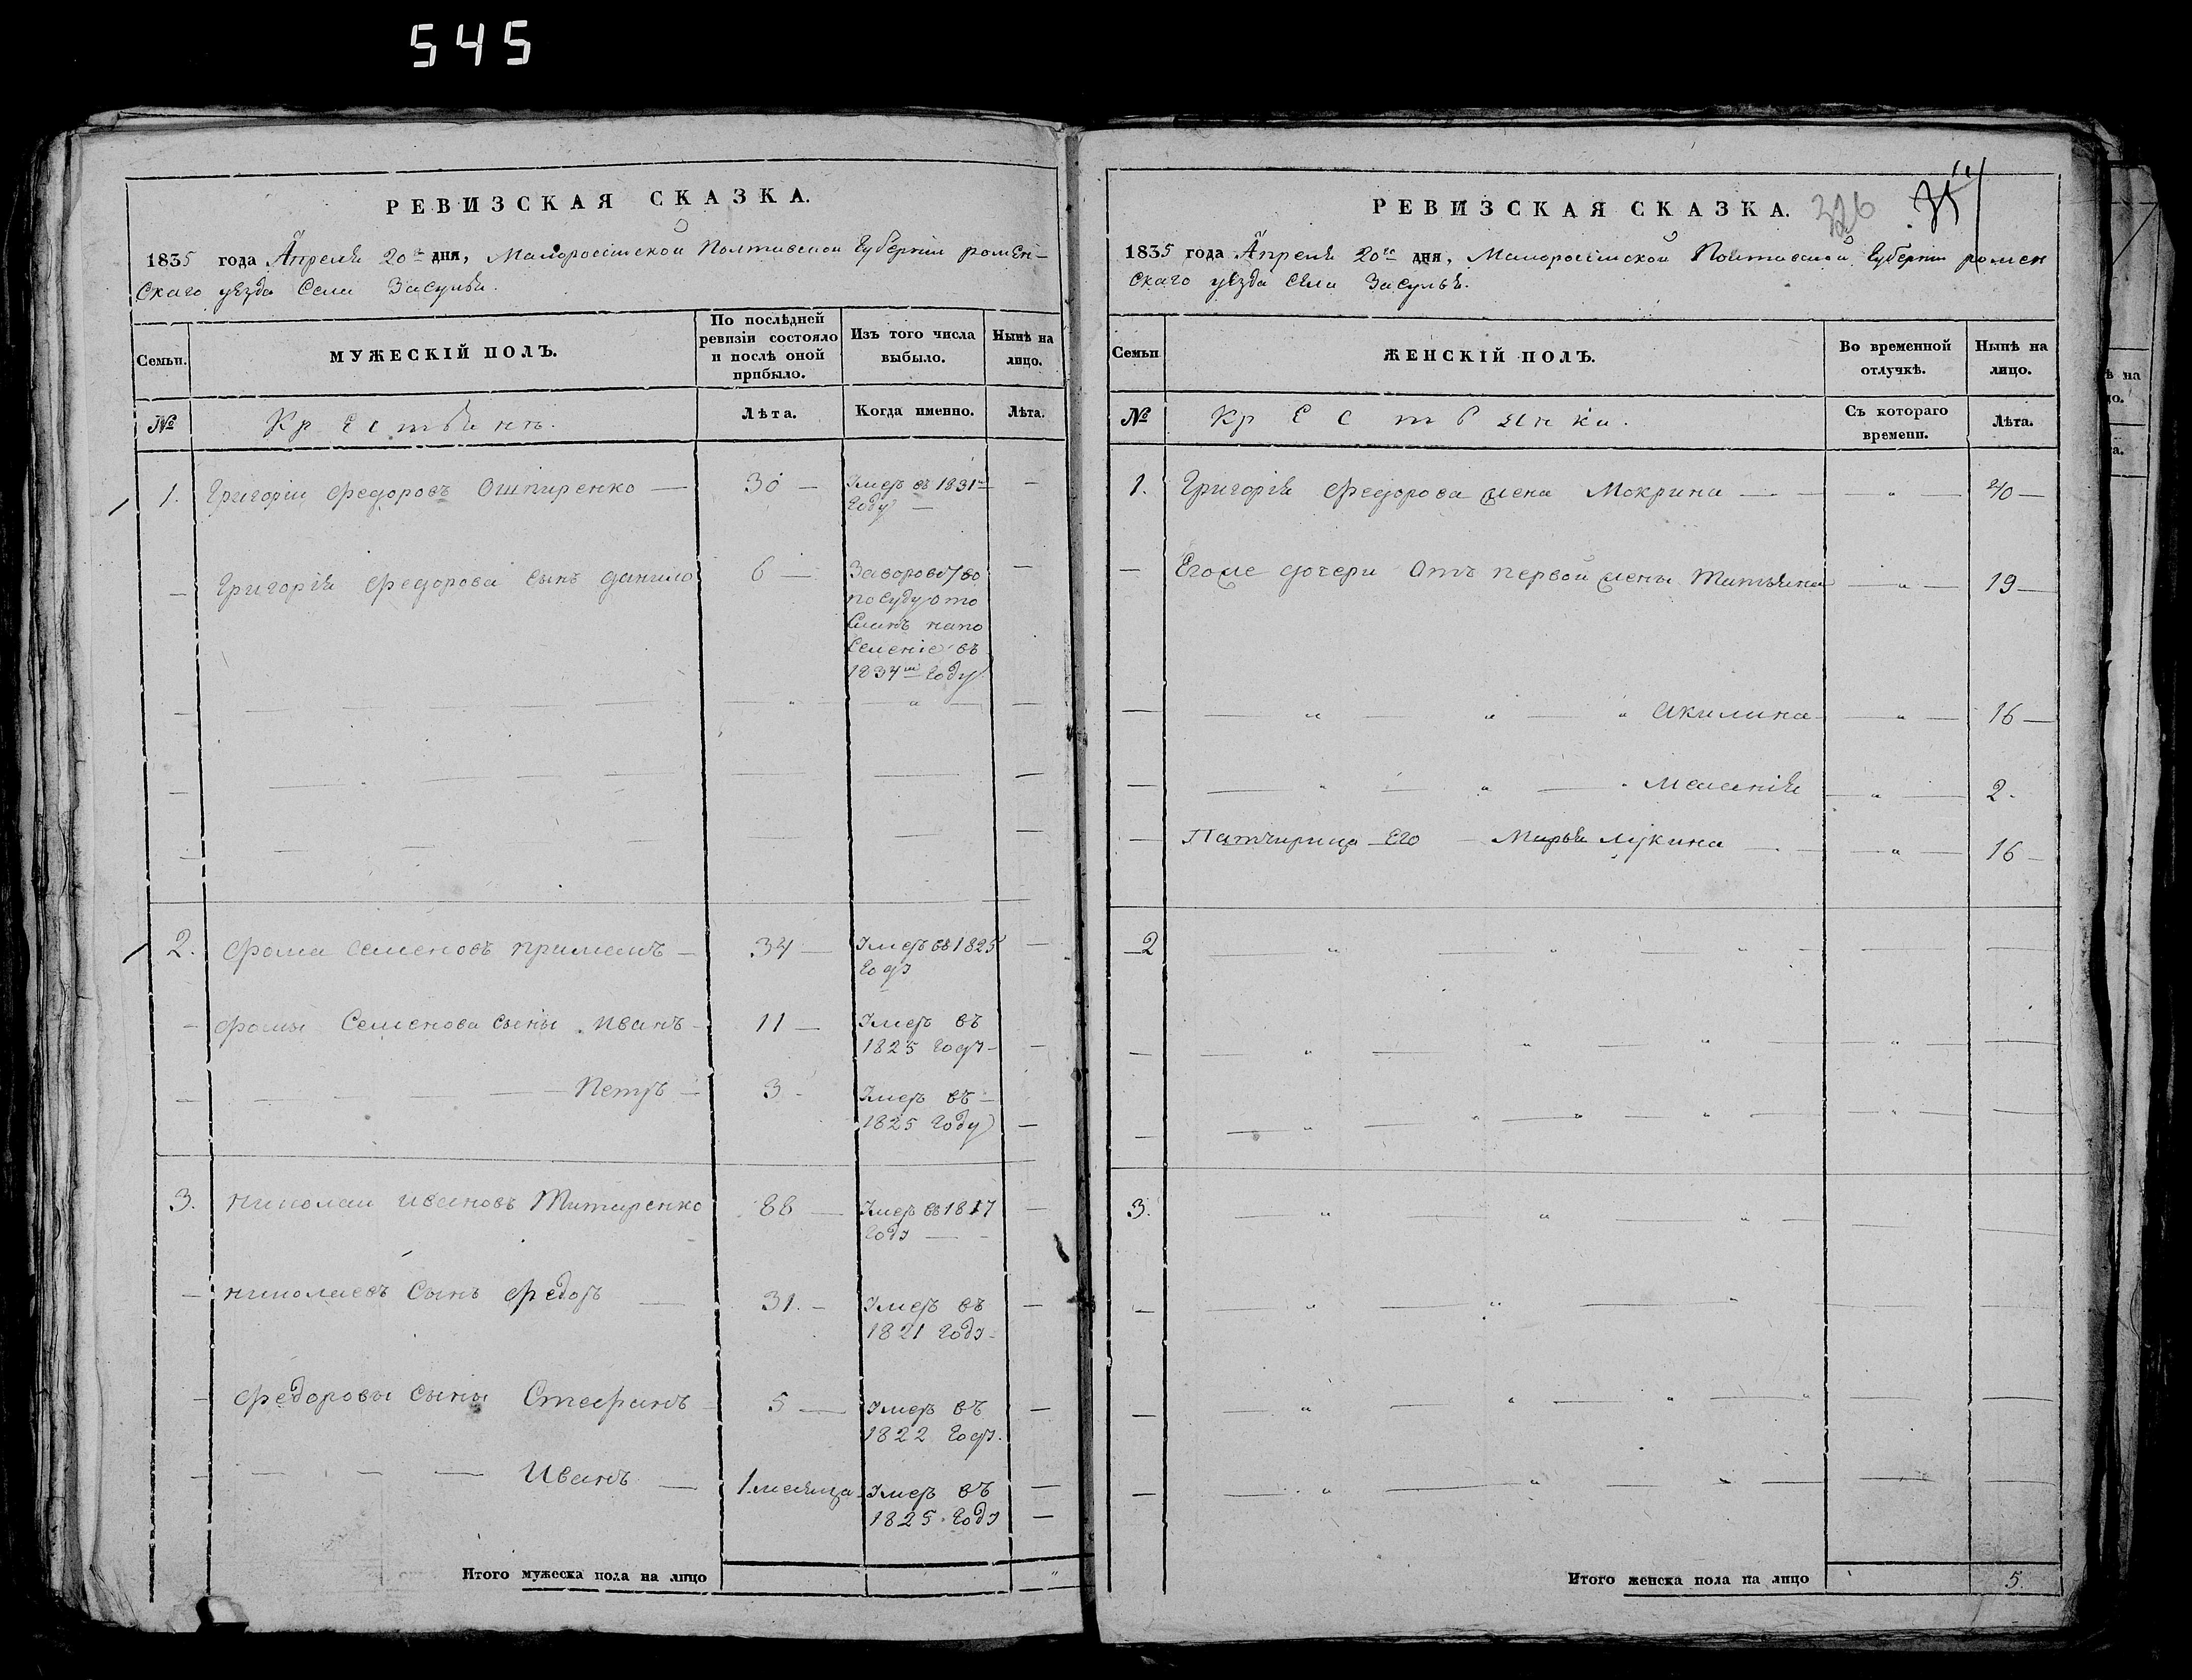 545
РЕВИЗСКАЯ СКАЗКА.
1835 года Апреля 20го дня, Малоросійской Полтавской Губерніи ромен-
скаго уѣзда Села Засулья.
Семьи.
МУЖЕСКІЙ ПОЛЪ.
По послѣдней
ревизіи состояло
и послѣ оной
прибыло.
Изъ того числа
выбыло.
Нынѣ на
лицо.
№
Крестьянъ.
Лѣта.
Когда именно.
Лѣта.
1. Григорій Федоровъ 30 Умеръ въ 1831м
Году
Григорія Федорова сынъ данило 6 За воровство
по суду отο
сланъ на по
селеніе въ
1834м Году
2. Фома Семеновъ 34 Умеръ въ 1825
Году
Фомы Семенова сыны Иванъ 11 Умеръ въ
1825 Году
Петръ 3 Умеръ въ
1825 Году
3. Николай Ивановъ Титаренко 88 Умеръ въ 1817
Году
Николаевъ Сынъ Федоръ 31. Умеръ въ
1821 Году
Федоровы Сыны Стефанъ 5 Умеръ въ
1822 Году.
Иванъ 1 месяца Умеръ въ
1825 Году
Итого мужеска пола на лицо "
РЕВИЗСКАЯ СКАЗКА.
326
1835 года Апреля 20го дня, Малоросійской Полтавской Губерніи ромен
скаго уѣзда Села Засулья.
Семьи
ЖЕНСКІЙ ПОЛЪ.
Во временной
отлучкѣ.
Нынѣ на
лицо.
№
Крестьянки.
Съ котораго
времени.
Лѣта.
1. Григорія Федорова жена Мокрина " 40
Егоже дочери Отъ первой жены Татьяна " 19
" " " Акилина " 16
" " " Меланія " 2.
Его Марья Лукина " 16
2 " " "
" " " "
" " " "
3. " " "
" " "
" " " "
" " "
Итого женска пола на лицо 5.